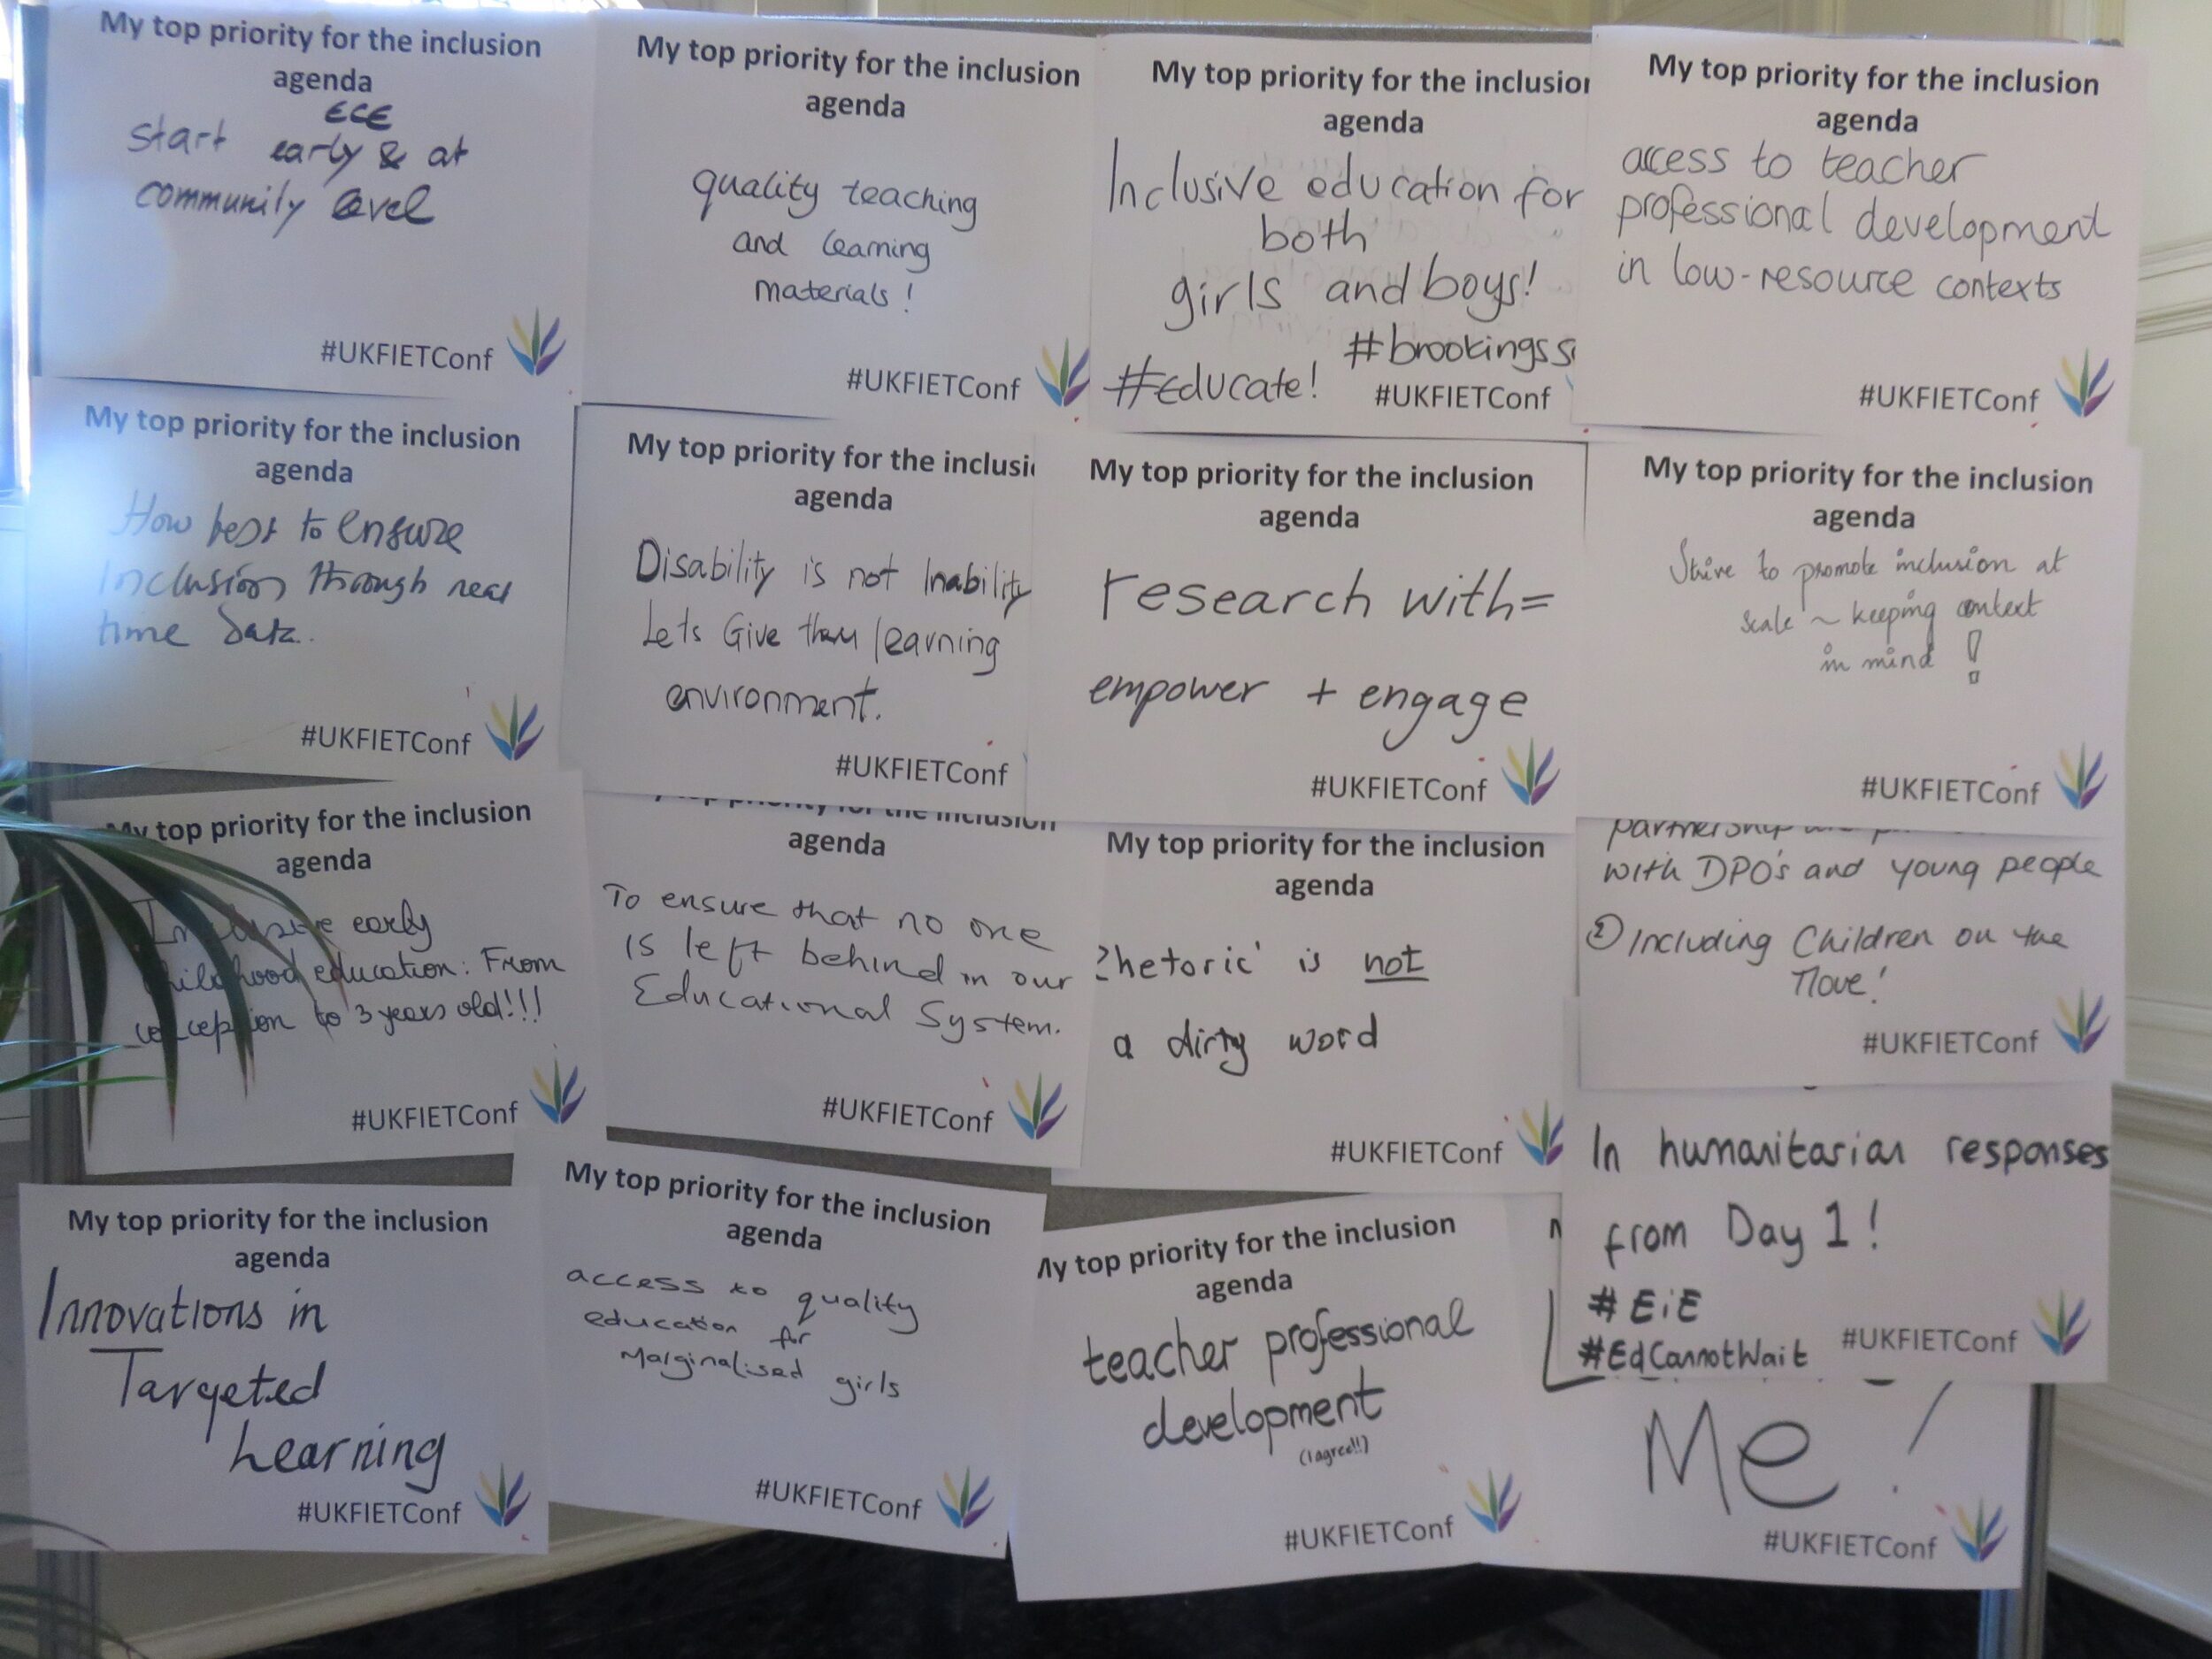 My top priority for the inclusion
agenda
ECE
start early & at
community level
#UKFIETConf
My top priority for the inclusion
agenda
quality teaching
and learning
materials!
#UKFIETConf
My top priority for the inclusion
agenda
Inclusive education for
both
girls and boys!
#brookings
#Educate!
#UKFIETConf
My top priority for the inclusion
agenda
access to teacher
professional development
in low-resource contexts
#UKFIETConf
My top priority for the inclusion
agenda
How best to ensure
Inclusion through real
time Data.
#UKFIETConf
My top priority for the inclusi
agenda
Disability is not Inability
Lets Give them learning
environment.
#UKFIETConf
My top priority for the inclusion
agenda
research with=
empower + engage
#UKFIETConf
My top priority for the inclusion
agenda
Strive to promote inclusion at
scale ~ keeping context
in mind !
#UKFIETConf
My top priority for the inclusion
agenda
Inclusive early
childhood education: From
conception to 3 years old!!!
#UKFIETConf
My top priority for the inclusion
agenda
To ensure that no one
is left behind in our
Educational System.
#UKFIETConf
My top priority for the inclusion
agenda
Rhetoric' is not
a dirty word
#UKFIETConf
partnership
with DPO's and young people
② Including Children on the
Move!
#UKFIETConf
In humanitarian responses
from Day 1!
#EiE
#EdCannotWait
#UKFIETConf
My top priority for the inclusion
agenda
Innovations in
Targeted
Learning
#UKFIETConf
My top priority for the inclusion
agenda
access to quality
education for
Marginalised girls
#UKFIETConf
My top priority for the inclusion
agenda
teacher professional
development
(I agree!!)
#UKFIETConf
Me!
#UKFIETConf